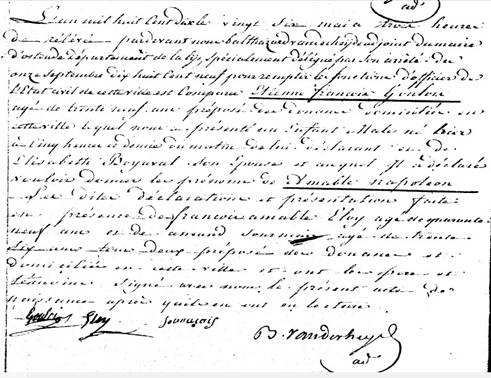 adj
L'an mil huit Cent dix le vingt six mai a trois heures
de relevée pardevant nous balthazar Vanderheyde adjoint du maire
d'ostende département de la Lys, spécialement délégué par son arrêté du
onze Septembre dix huit Cent neuf pour remplir les fonctions d'officier de
l'état civil de cette ville est Comparu Etienne francois
agé de trente neuf ans préposé des douanes domicilié en
cette ville lequel nous a présenté un Enfant Male né hier
a Cinq heures et demie du matin de lui déclarant et de
Elisabeth Son Epouse et auquel Il a déclaré
vouloir donner les prénoms de Amable napoleon
Les dites déclaration et présentation faites
en présence de francois amable Eloy agé de quarante
neuf ans et de amand agé de trente
Six ans tous deux préposés des douanes et
domiciliés en cette ville et ont les pere et
témoins signé avec nous le présent acte de
naissance après qu'il en ont eu lecture.
Eloy
B. Vanderheyde
adj